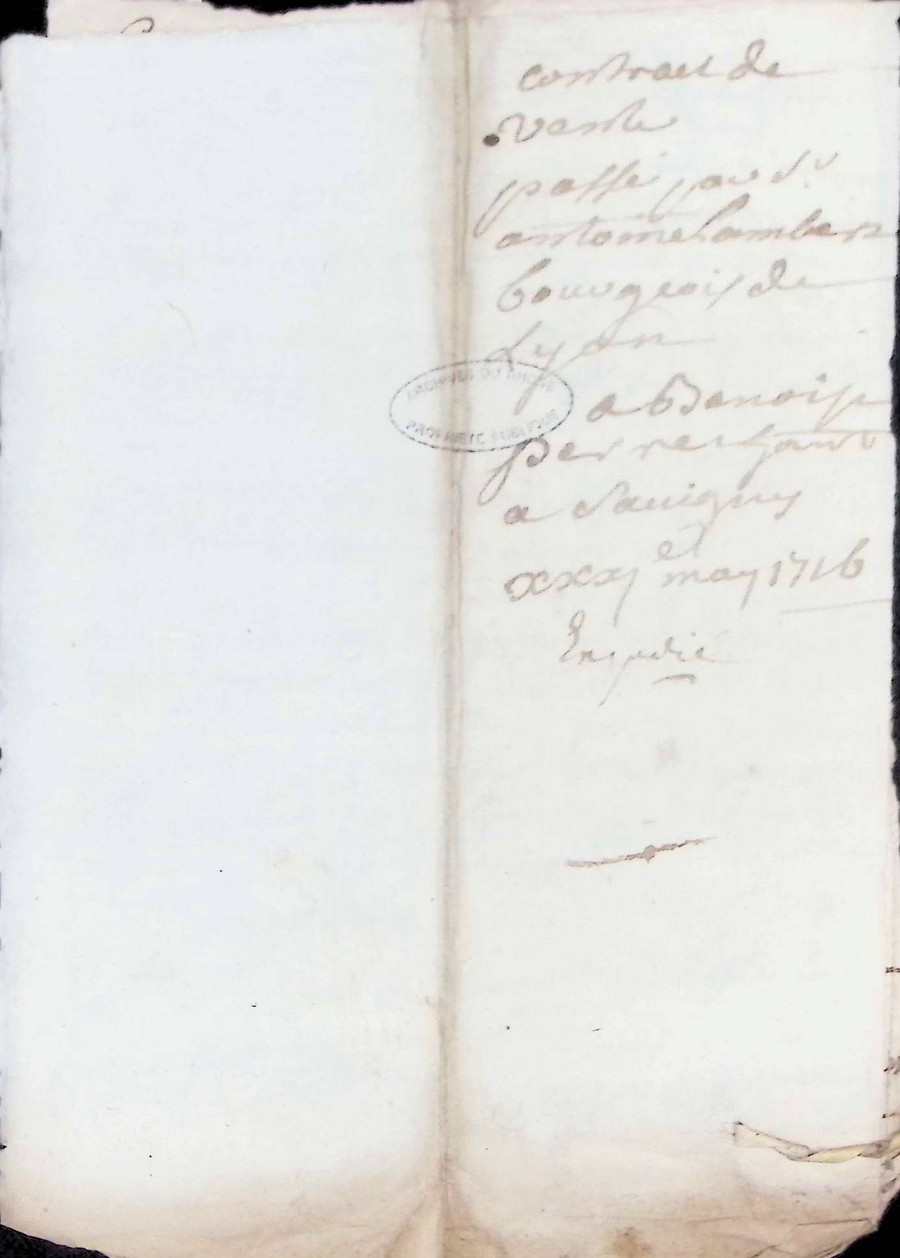 contract de
vente
passé par Sr
antoine Lambert
bourgeois de
Lyon
ARCHIVES DU RHONE
PROPRIETE PUBLIQUE
a Benoist
a Savigny
xxxj et may 1716
Expedié